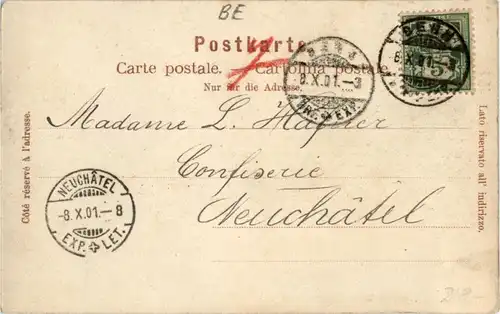 BE
Postkarte.
Carte postale. Cartolina postale.
Nur für die Adresse.
BERN 1
-8.X.01.-3
BRF. EXP.
BERN 1
-8.X.01.-3
5
Côté réservé à l'adresse.
Lato riservato all' indirizzo.
Madame L. Hafner
Confiserie
Neuchâtel
NEUCHÂTEL
-8.X.01.-8
EXP. LET.